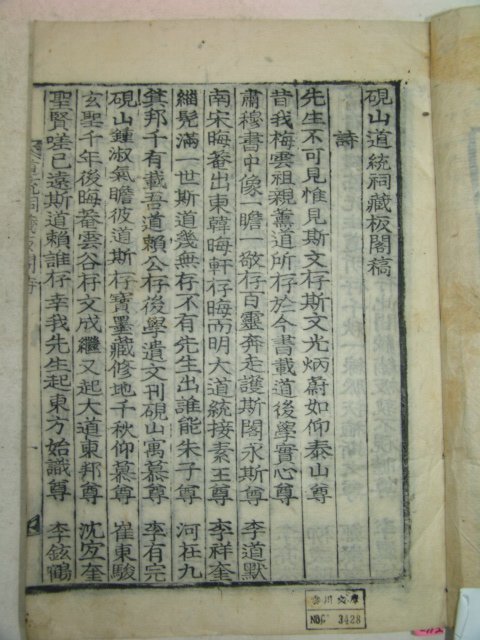 硯山道統祠藏板閣稿
詩
先生不可見惟見斯文存斯文光炳蔚如仰泰山尊
昔我梅雲祖親薰道所存於今書載道後學實心尊
肅穆書中像一瞻一敬存百靈奔走護斯閣永斯尊 李道默
南宋晦菴出東韓晦軒存晦而明大道統接素王尊 李祥奎
緇髡滿一世斯道幾無存不有先生出誰能朱子尊 河在九
箕邦千有載吾道賴公存後學遺文刊硯山寓慕尊 李有完
硯山鍾淑氣瞻彼道斯存寶墨藏修地千秋仰慕尊 崔東駿
玄聖千年後晦菴雲谷存文成繼又起大道東邦尊 沈宜奎
聖賢嗟已遠斯道賴誰存幸我先生起東方始識尊 李鉉鶴
NO 3428